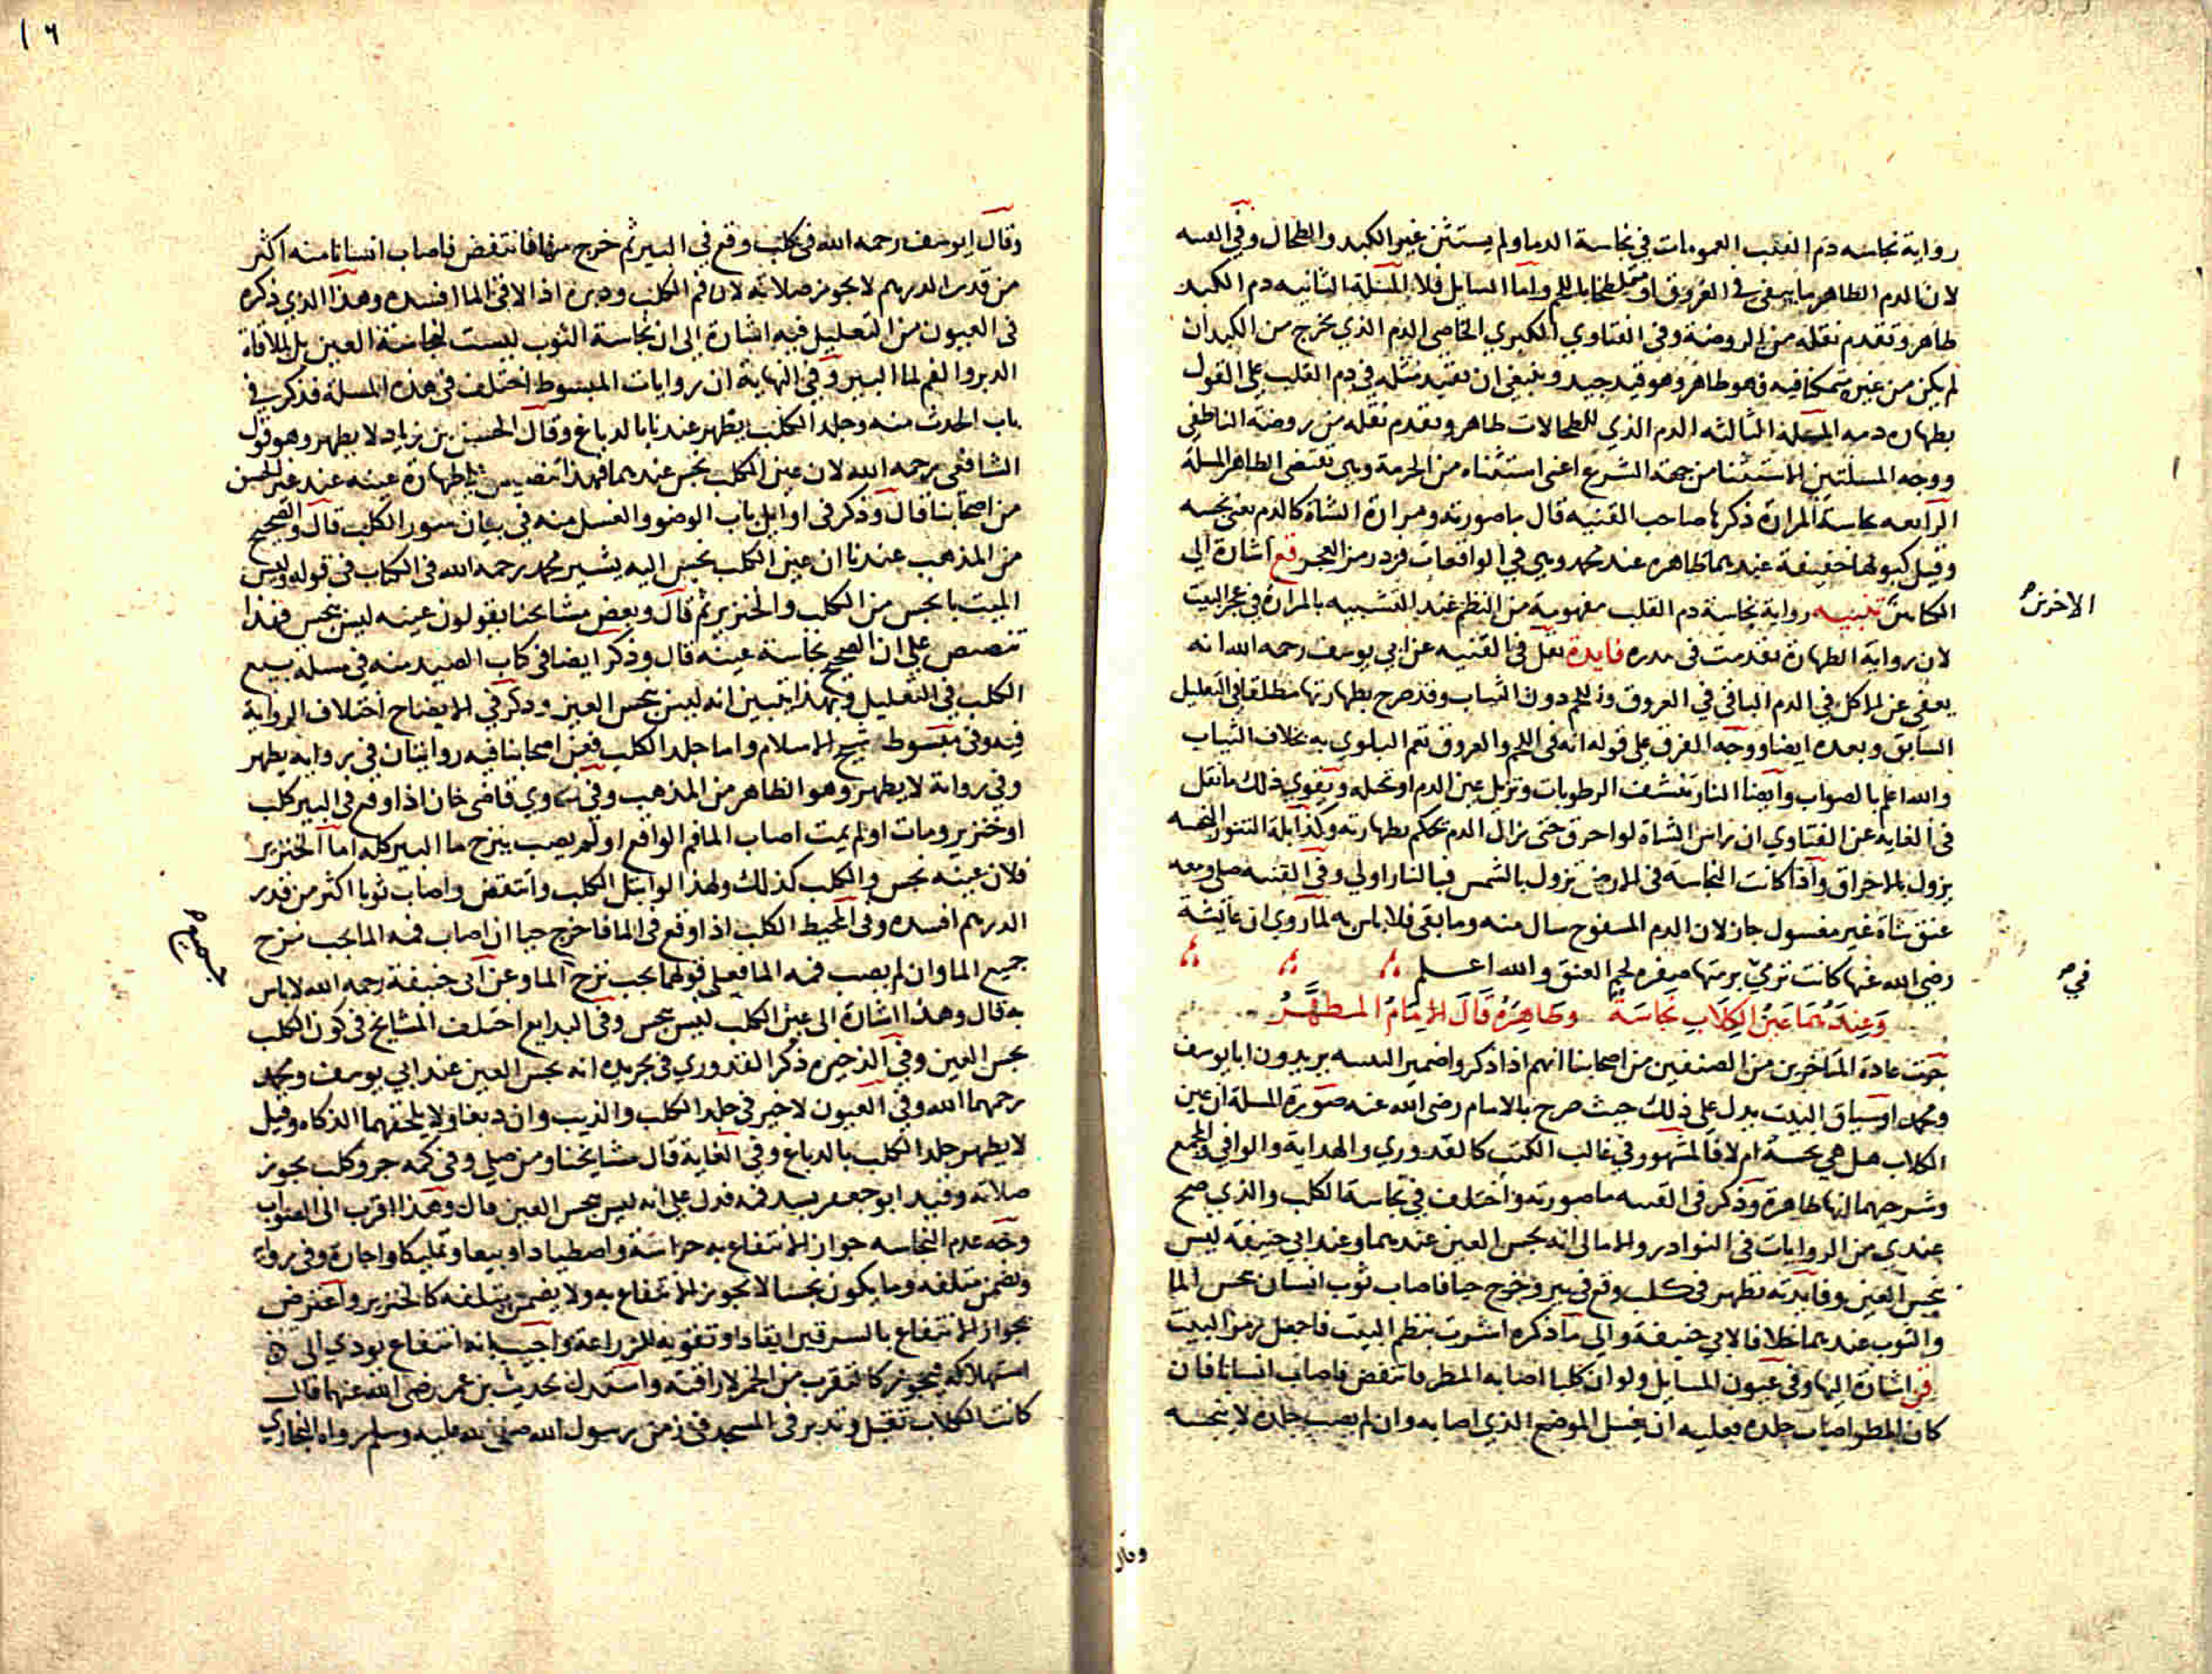 رواية نجاسه دم القلب العمومات في نجاسة الدما ولم يستثن غير الكبد والطحال وفي القنيه
لان الدم الطاهر ما يبقى في العروق او ملطخا باللحم واما السايل فلا المسلة الثانيه دم الكبد
طاهر وتقدم نقله من الروضة وفي الفتاوي الكبري الخاصي الدم الذي يخرج من الكبد ان
لم يكن من غيره متمكنا فيه فهو طاهر وهو قيد جيد وينبغي ان تقيد مثله في دم القلب على القول
بطهارة دمه المسلة الثالثه الدم الذي للطحالات طاهر وتقدم نقله من روضة الناطفي
ووجه المسلتين الاستثنا من جهة الشرع اعنى استثناه من الحرمة وهي تقتضى الطاهر المسلة
الرابعه نجاسة المرارة ذكرها صاحب القنيه قال ما صورته ومرارة الشاة كالدم يعنى نجسه
وقيل كبولها خفيفة عندهما طاهره عند محمد وهي في الواقعات فزد رمز العجز قع اشارة الي
الكاش تنبيه رواية نجاسة دم القلب مفهومة من النظم عند التشبيه بالمرارة في عجز البيت
لان رواية الطهارة تقدمت في صدره فايدة نقل في القنيه عن ابي يوسف رحمه الله انه
يعفى عن الاكل في الدم الباقي في العروق وللحم دون الثياب وقد صرح بطهارتها مطلقا في التعليل
السابق وبعده ايضا ووجه الفرق على قوله انه في اللحم والعروق تعم البلوي به بخلاف الثياب
والله اعلم بالصواب وايضا النار تنشف الرطوبات وتزيل عين الدم او تحله ويقوي ذلك ما نقل
في الغايه عن الفتاوي ان راس الشاة لو احرق حتى يزال الدم يحكم بطهارته وكذا بلة التنور النجسه
يزول بالاحراق واذا كانت النجاسة في الارض تزول بالشمس فبالنار اولي وفي القنيه صلى ومعه
عنق شاة غير مغسول جاز لان الدم المسفوح سال منه وما بقى فلا باس به لما روي ان عايشة
رضي الله عنها كانت ترى برمتها صفرة لحم العنق والله اعلم
وعندهما عين الكلاب نجاسة وطاهرة قال الامام المطهر
جرت عادة المتاخرين من المصنفين من اصحابنا انهم اذا ذكروا ضمير التثنيه يريدون ابا يوسف
ومحمد او سياق البيت يدل على ذلك حيث صرح بالامام رضى الله عنه صورة المسلة ان عين
الكلاب هل هي نجسة ام لا فالمشهور في غالب الكتب كالقدوري والهداية والوافي والمجمع
وشرحيهما انها طاهرة وذكر في القنيه ما صورته واختلف في نجاسة الكلب والذي صح
عندي من الروايات في النوادر والامالي انه نجس العين عندهما وعند ابي حنيفة ليس
نجس العين وفايدته تظهر في كلب وقع في بير وخرج حيا فاصاب ثوب انسان نجس الما
والثوب عندهما خلافا لابي حنيفة والى ما ذكره اشرت بنظم البيت فاجعل رمز البيت
قن اشارة اليها وفي عيون المسايل ولو ان كلبا اصابه المطر فانتفض فاصاب انسانا فان
كان المطر اصاب جلده فعليه ان يغسل الموضع الذي اصابه وان لم يصب جلده لا ينجسه
الاخرس
في
وقال
١٦
وقال ابو يوسف رحمه الله في كلب وقع في البير ثم خرج منها فانتفض فاصاب انسانا منه اكثر
من قدر الدرهم لا يجوز صلاته لان فم الكلب ودبره اذا لاقى الما افسده وهذا الذي ذكره
في العيون من التعليل فيه اشارة الى ان نجاسة الثوب ليست لنجاسة العين بل لملاقاة
الدبر والفم لما البير وفي النهاية ان روايات المبسوط اختلف في هذه المسلة فذكر في
باب الحدث منه وجلد الكلب يطهر عندنا بالدباغ وقال الحسن بن زياد لا يطهر وهو قول
الشافعي رحمه الله لان عين الكلب نجس عندهما فهذا تنصيص على طهارة عينه عند غير الحسن
من اصحابنا قال وذكر في اوايل باب الوضو والغسل منه في بيان سور الكلب قال والصحيح
من المذهب عندنا ان عين الكلب نجس اليه يشير محمد رحمه الله في الكتاب في قوله وليس
الميت بانجس من الكلب والخنزير ثم قال وبعض مشايخنا يقولون عينه ليس بنجس فهذا
تنصيص على ان الصحيح نجاسة عينه قال وذكر ايضا في كتاب الصيد منه في مسله بيع
الكلب في التعليل وبهذا يتبين انه ليس بنجس العين وذكر في الايضاح اختلاف الرواية
فيه وفي مبسوط شيخ الاسلام واما جلد الكلب فعن اصحابنا فيه روايتان في روايه يطهر
وفي رواية لا يطهر وهو الظاهر من المذهب وفي فتاوي قاضى خان اذا وقع في البير كلب
او خنزير ومات او لم يمت اصاب الما فم الواقع او لم يصب ينزح ما البير كله اما الخنزير
فلان عينه نجس والكلب كذلك ولهذا لو ابتل الكلب وانتفض واصاب ثوبا اكثر من قدر
الدرهم افسده وفي المحيط الكلب اذا وقع في الما فاخرج حيا ان اصاب فمه الما يجب نزح
جميع الما وان لم يصب فمه الما فعلى قولهما يجب نزح الما وعن ابي حنيفة رحمه الله لا باس
به قال وهذا اشارة الى عين الكلب ليس بنجس وفي البدايع اختلف المشايخ في كون الكلب
نجس العين وفي الذخيره ذكر القدوري في تجريده انه نجس العين عند ابي يوسف ومحمد
رحمهما الله وفي العيون لا خير في جلد الكلب والذيب وان دبغا ولا يلحقهما الذكاه وقيل
لا يطهر جلد الكلب بالدباغ وفي الغاية قال مشايخنا ومن صلى وفي كمه جرو كلب يجوز
صلاته وقيد ابو جعفر بسد فمه فدل على انه ليس نجس العين قال وهذا اقرب الى الصواب
وجه عدم النجاسه جواز الانتفاع به حراسة واصطيادا وبيعا وتمليكا واجارة وفي رواية
ويضمن متلفه وما يكون نجسا لا يجوز الانتفاع به ولا يضمن متلفه كالخنزير واعترض
بجواز الانتفاع بالسرقين ايقادا وتقوية للزراعة واجيب بانه انتفاع يودي الى
استهلاكه فيجوز كالتقرب من الخمر لاراقته واستدل بحديث بن عمر رضي الله عنهما قال
كانت الكلاب تقبل وتدبر في المسجد في زمن رسول الله صلى الله عليه وسلم رواه البخاري